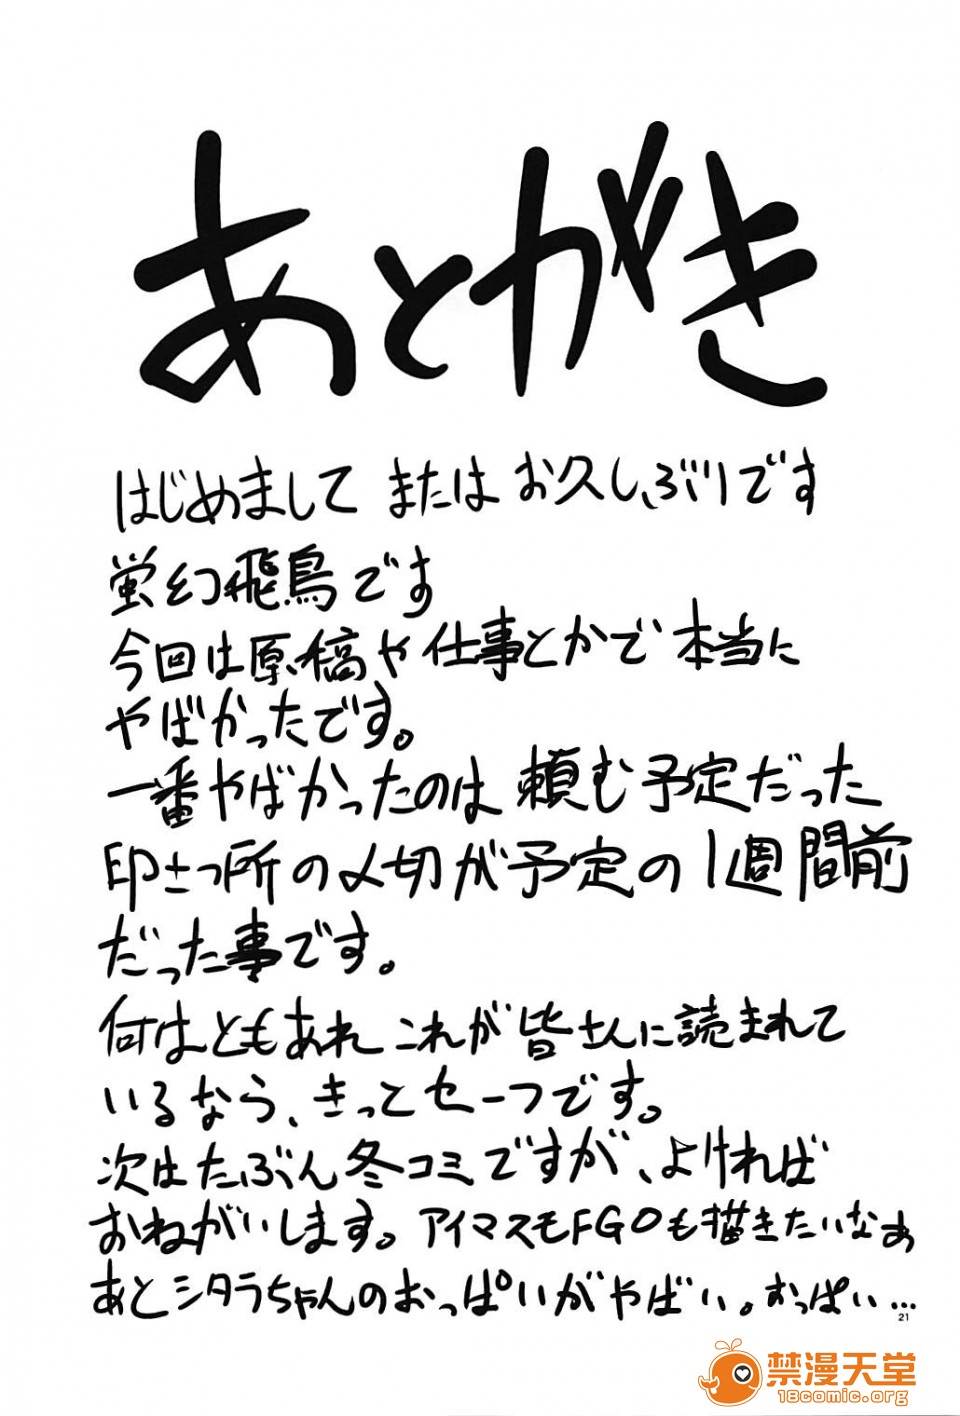 あとがき
はじめまして またはお久しぶりです
蛍幻飛鳥です
今回は原稿や仕事とかで本当に
やばかったです。
一番やばかったのは頼む予定だった
印さつ所の〆切が予定の1週間前
だった事です。
何はともあれこれが皆さんに読まれて
いるなら、きっとセーフです。
次はたぶん冬コミですが、よければ
おねがいします。アイマスもFGOも描きたいなぁ
あとシタラちゃんのおっぱいがやばい。おっぱい...
21
禁漫天堂
18comic.org